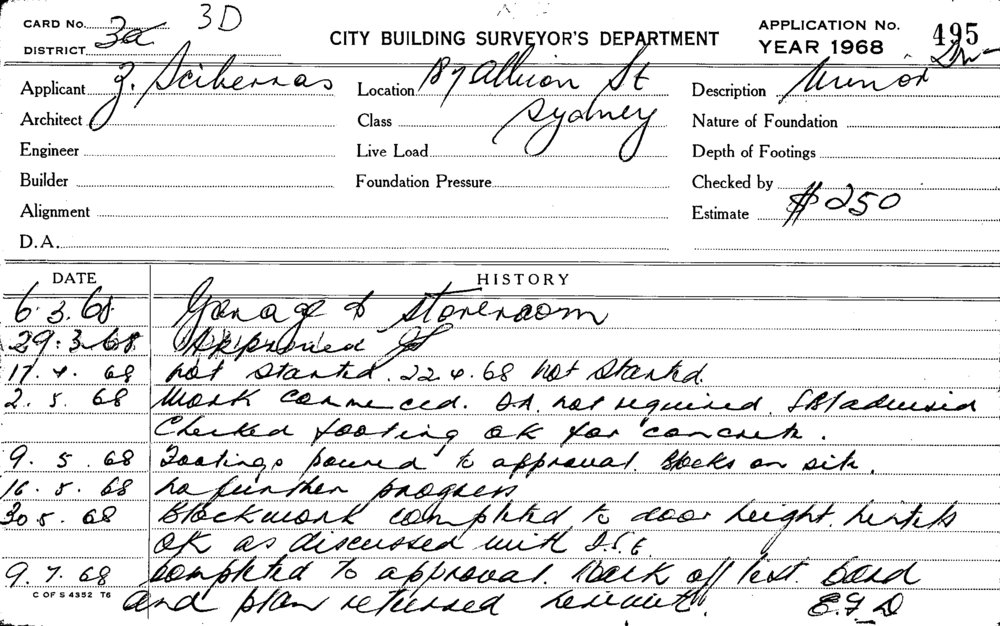 CARD No. 3a 3D
DISTRICT
CITY BUILDING SURVEYOR'S DEPARTMENT
APPLICATION No. 495
YEAR 1968
Applicant Z. Sciberras
Location 87 Albion St
Description Minor
Architect
Class Sydney
Nature of Foundation
Engineer
Live Load
Depth of Footings
Builder
Foundation Pressure
Checked by
Alignment
Estimate $250
D.A.
DATE HISTORY
6.3.68. Garage & Storeroom
29.3.68. Approved
17.4.68 not started. 22.4.68 not started.
2.5.68 Work commenced. D.A. not required. SBI advised
Checked footing OK for concrete.
9.5.68 Footings poured to approval. Blocks on site.
16.5.68 no further progress
30.5.68 Blockwork completed to door height. lintels
OK as discussed with
9.7.68 completed to approval. Mark off last card
and plan returned herewith. E.G.D
C OF S 4352 T6